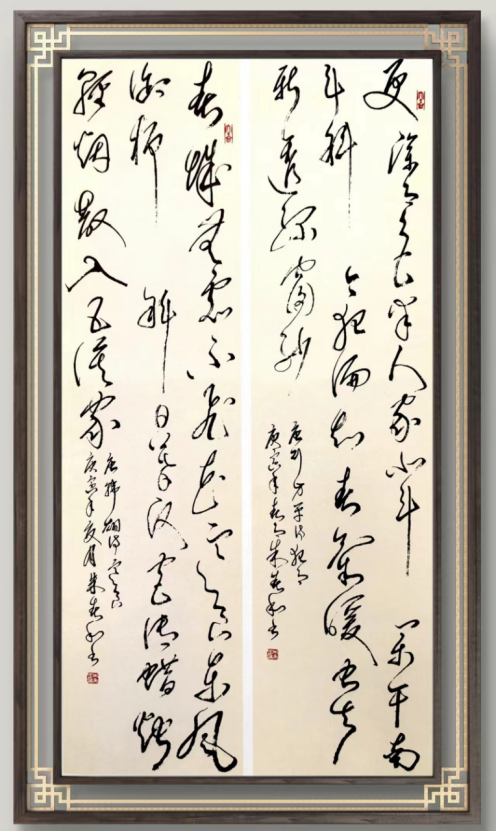 更深月色半人家北斗阑干南
斗斜今夜偏知春气暖虫声
新透绿窗纱
唐刘方平诗
庚寅年春月
春城无处不飞花寒食东风
御柳斜日暮汉宫传蜡烛
轻烟散入五侯家
唐韩翃诗寒食
庚寅年夏月